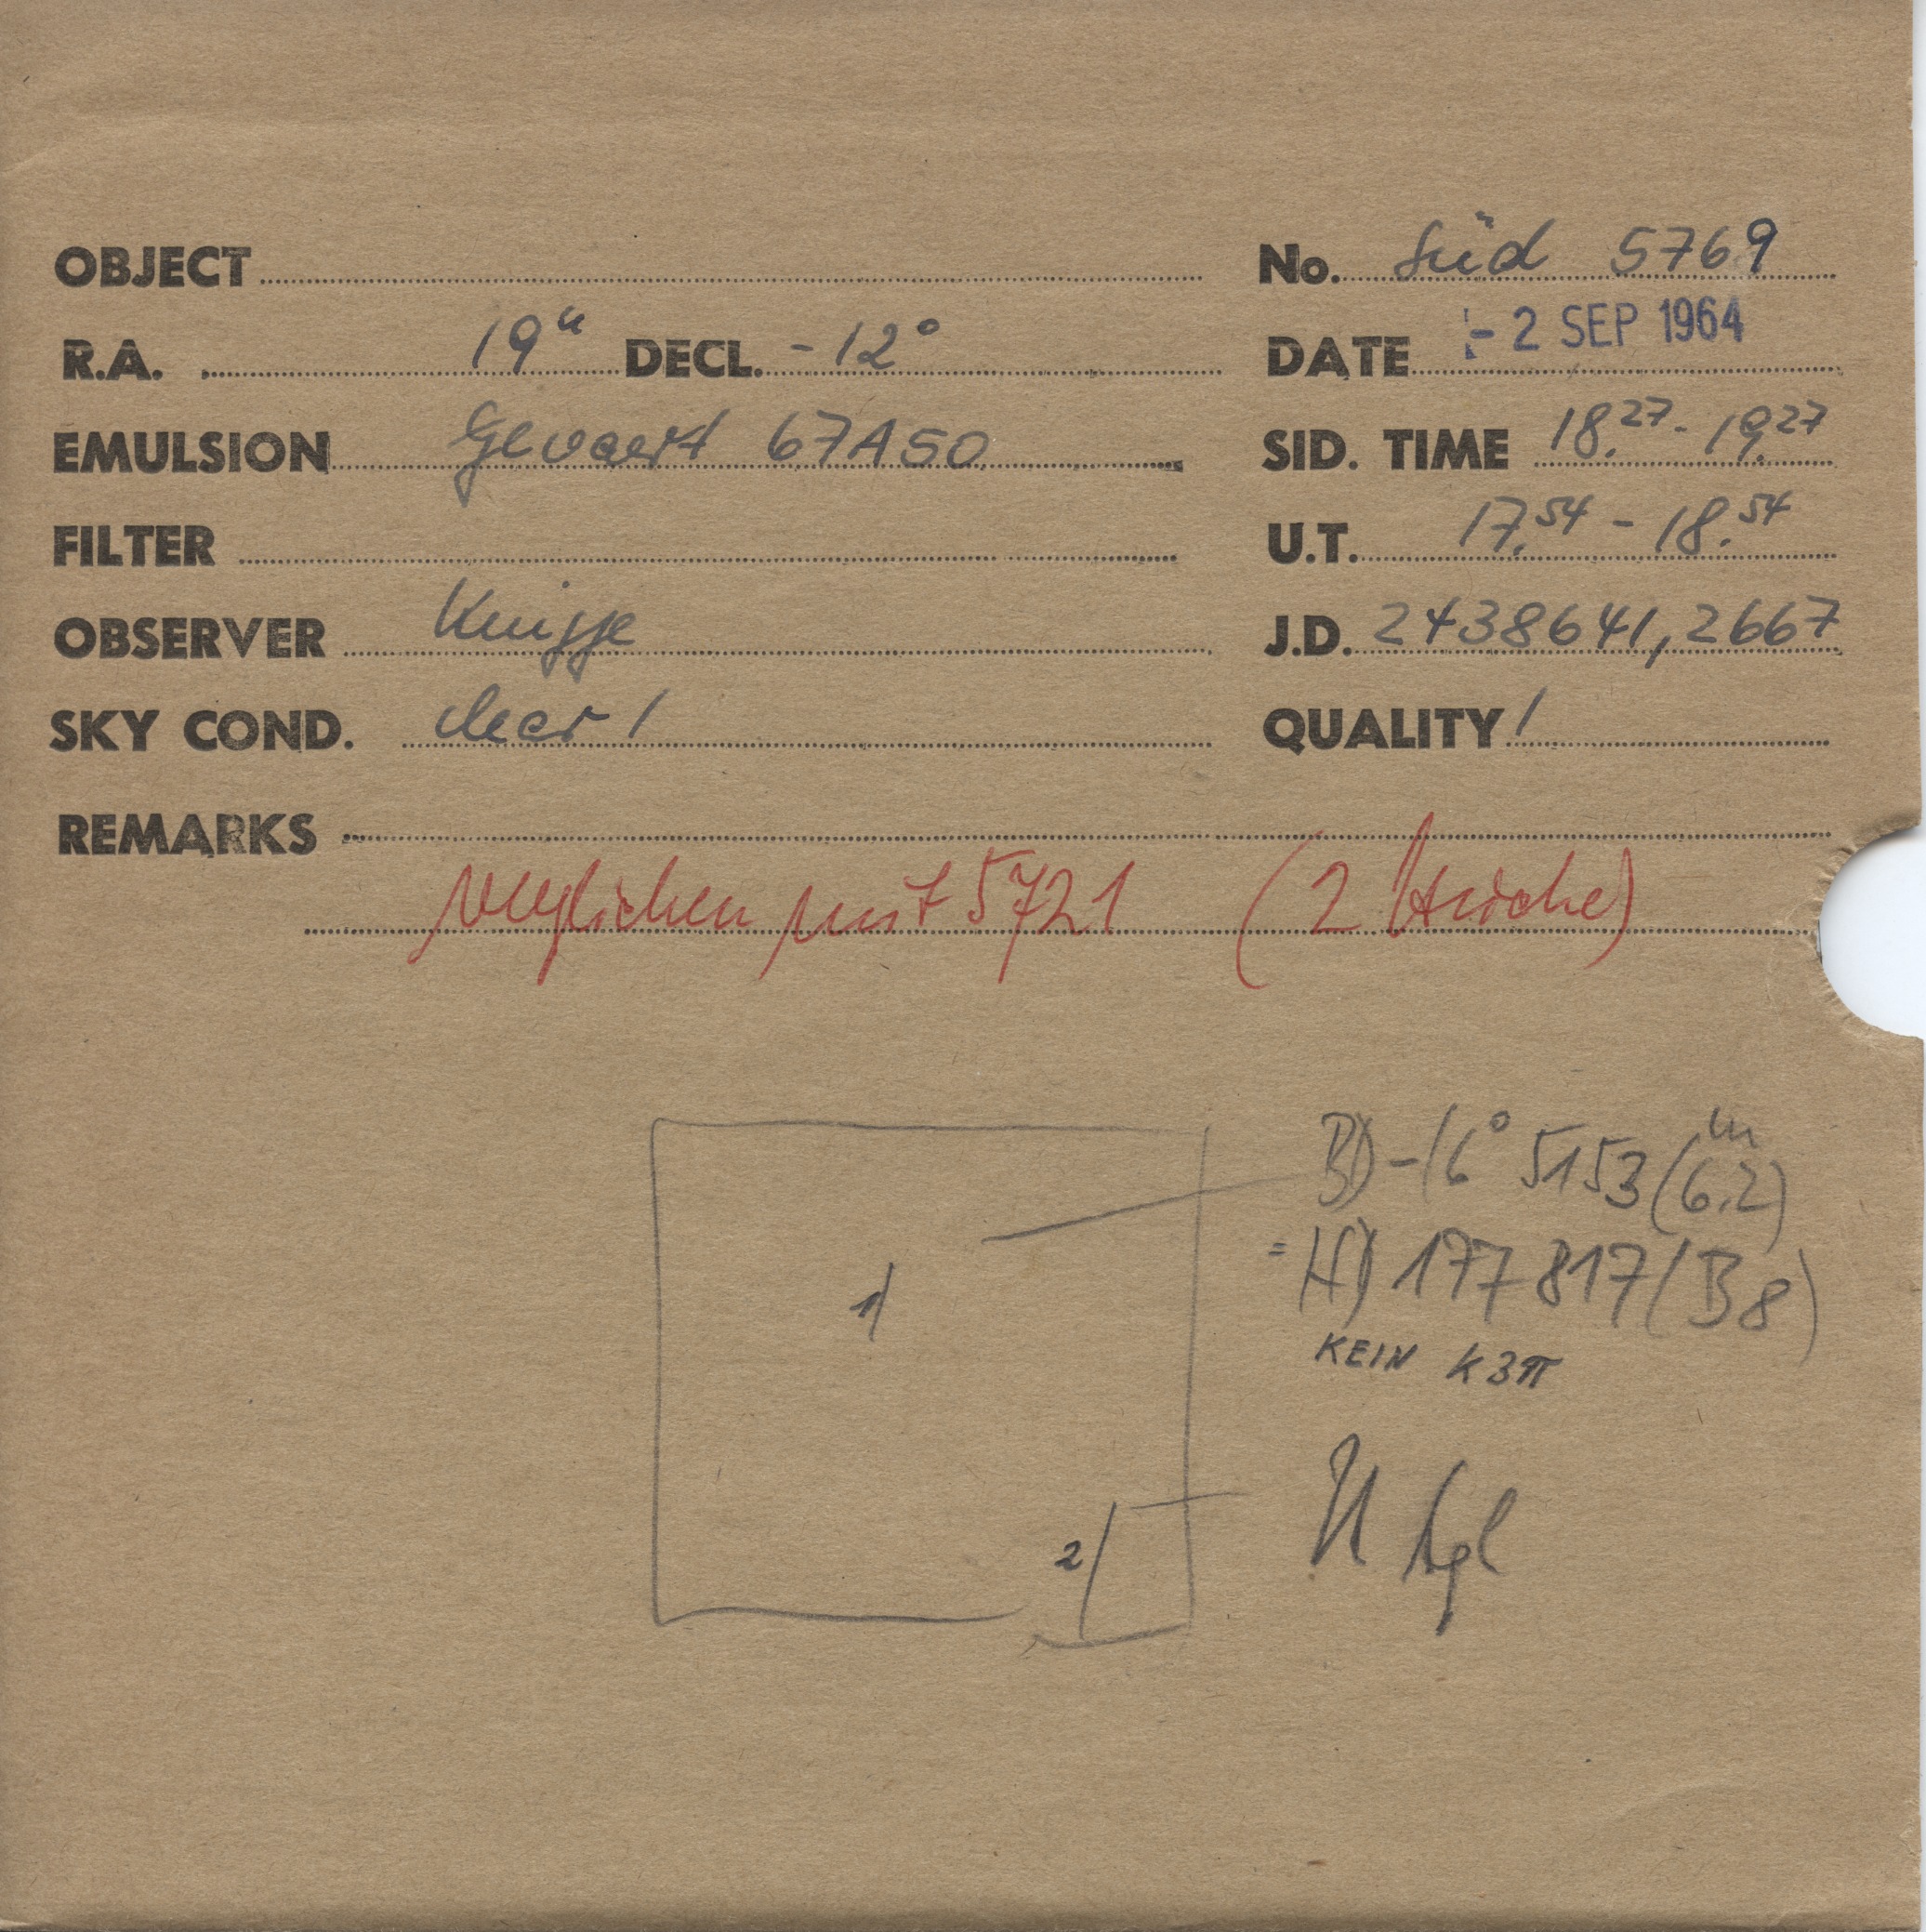 OBJECT
No. Süd 5769
R.A. 19h DECL. -12°
DATE - 2 SEP 1964
EMULSION Gevaert 67A50
SID. TIME 18.27 - 19.27
FILTER
U.T. 17.54 - 18.54
OBSERVER Knigge
J.D. 2438641,2667
SKY COND. clear 1
QUALITY 1
REMARKS
verglichen mit 5721 (2 Striche)
BD -16° 5153 (6.2m)
= HD 177817 (B8)
KEIN K3π
1
2
U Aql